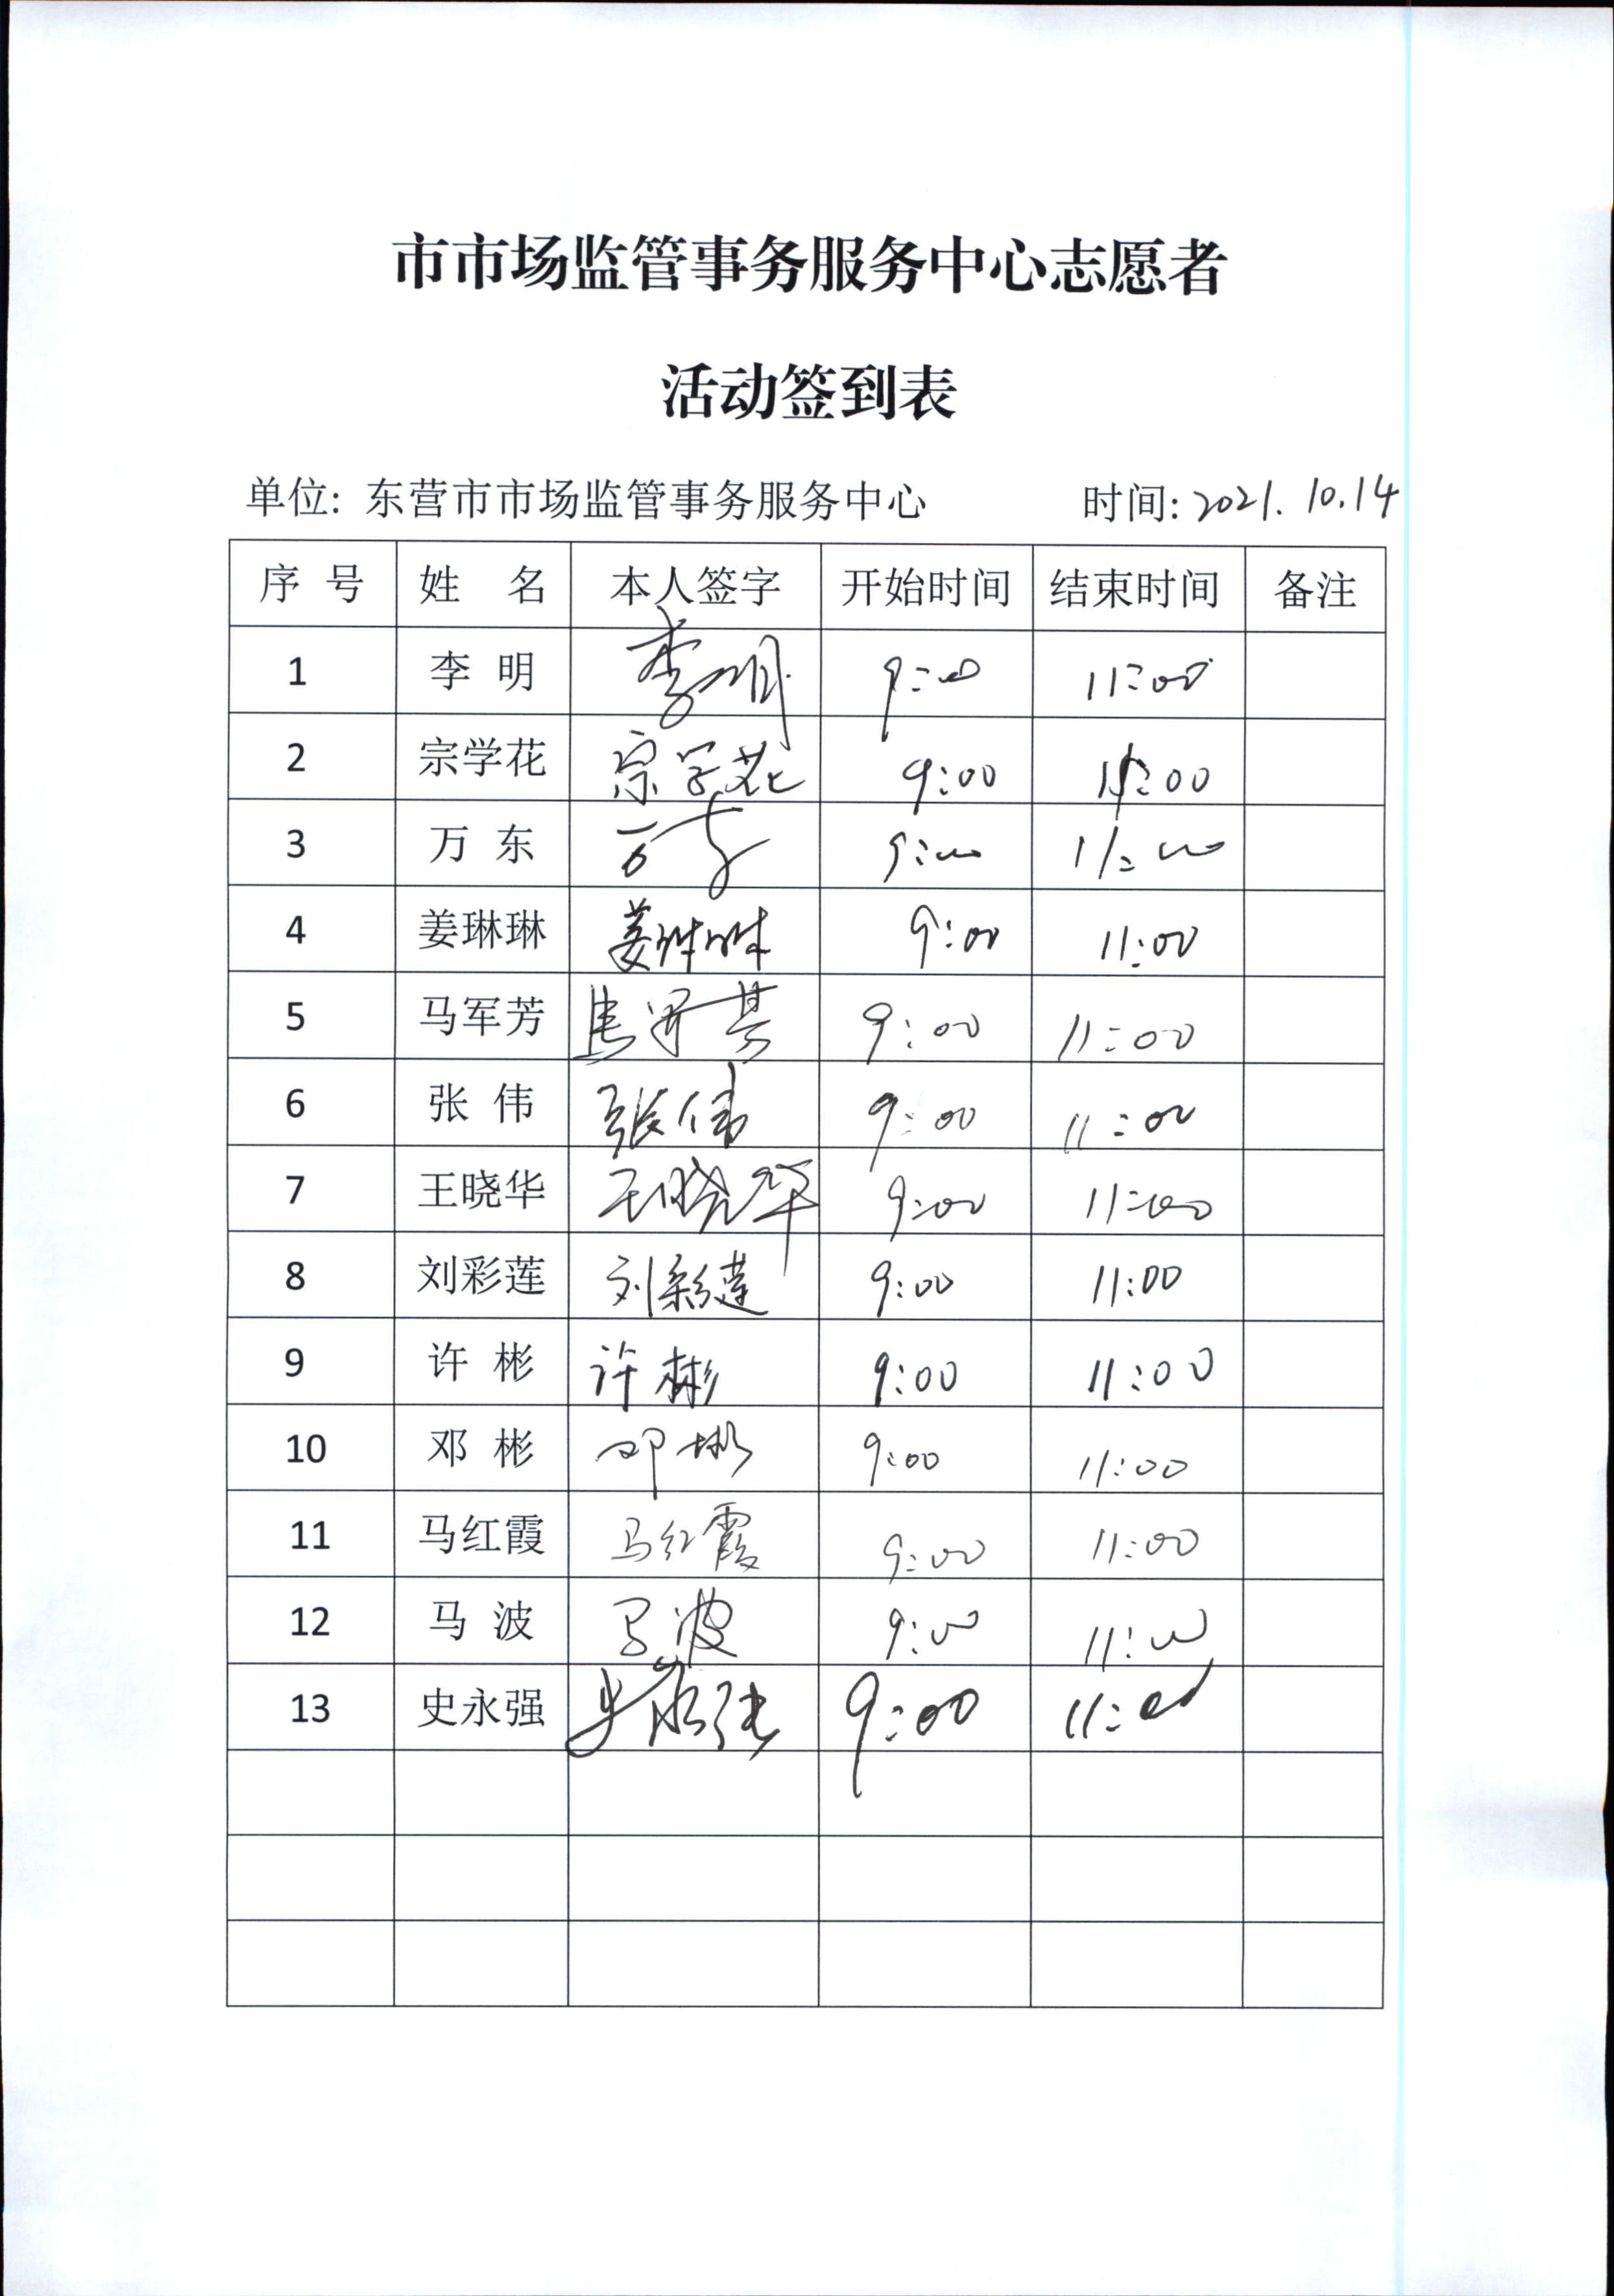 市市场监管事务服务中心志愿者
活动签到表
单位: 东营市市场监管事务服务中心 时间: 2021.10.14
序 号 姓 名 本人签字 开始时间 结束时间 备注
1 李 明 李明 9:00 11:00
2 宗学花 宗学花 9:00 11:00
3 万 东 万东 9:00 11:00
4 姜琳琳 姜琳琳 9:00 11:00
5 马军芳 馬军芳 9:00 11:00
6 张 伟 張伟 9:00 11:00
7 王晓华 王晓华 9:00 11:00
8 刘彩莲 刘彩莲 9:00 11:00
9 许 彬 许彬 9:00 11:00
10 邓 彬 邓彬 9:00 11:00
11 马红霞 马红霞 9:00 11:00
12 马 波 马波 9:00 11:00
13 史永强 史永强 9:00 11:00